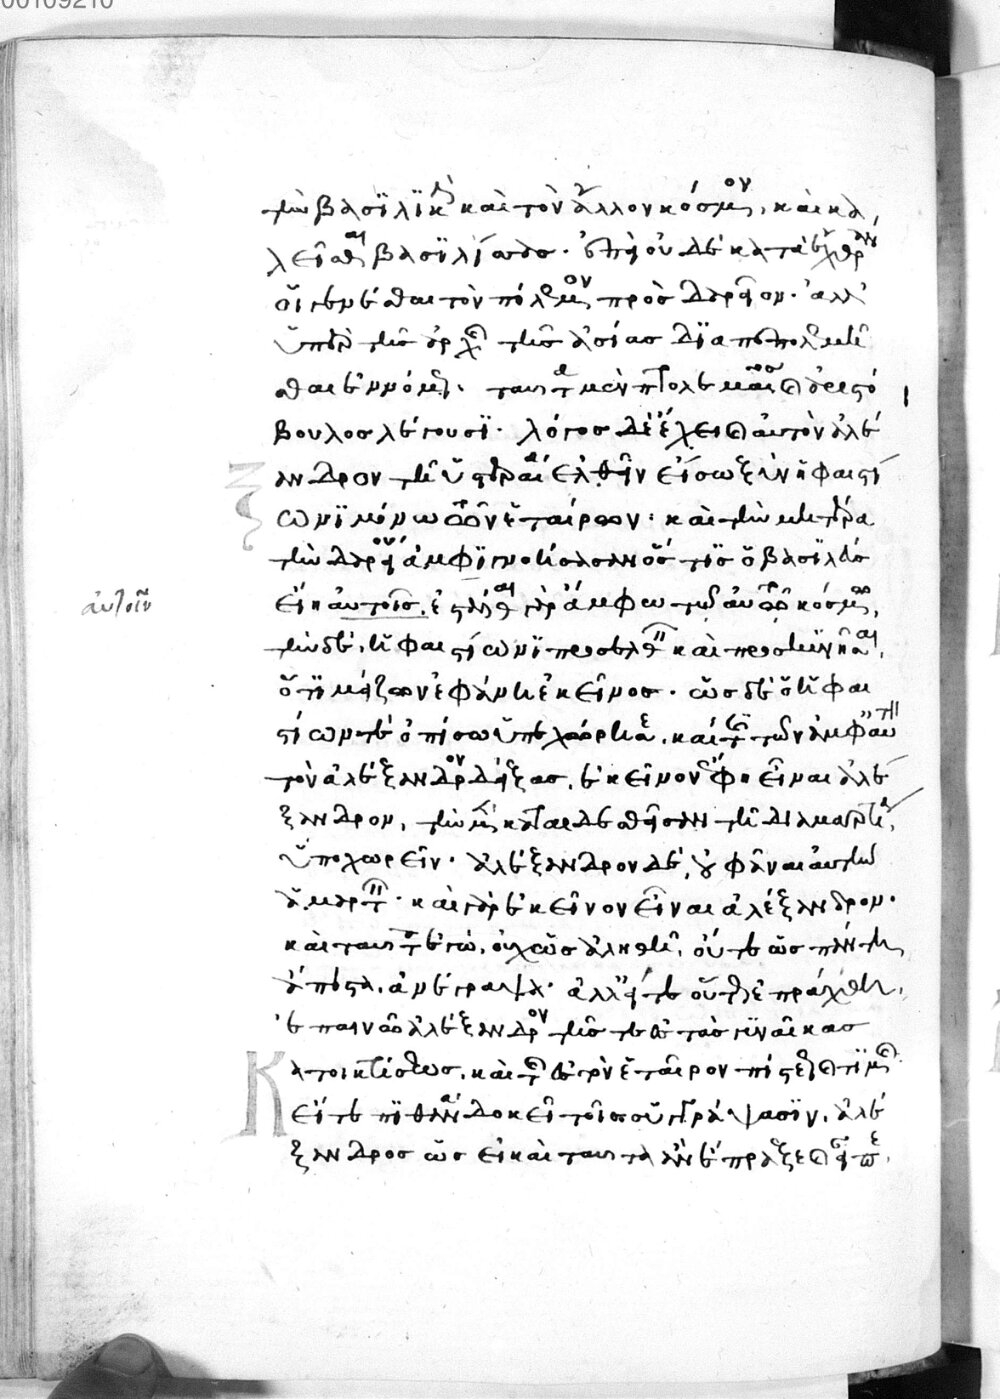 τὴν βασιλικὴν καὶ τὸν ἄλλον κόσμον, καὶ κα
λεῖσθαι βασιλίσσας· ἐπεὶ οὐδὲ κατὰ ἔχθραν
οἱ γενέσθαι τὸν πόλεμον πρὸς δαρεῖον· ἀλλ'
ὑπὲρ τῆς ἀρχῆς τῆς ἀσίας διαπεπολεμῆ
σθαι ἐννόμως· ταῦτα μὲν πτολεμαῖος καὶ ἀριστό
βουλος λέγουσι· λόγος δὲ ἔχει καὶ αὐτὸν ἀλέ
ξανδρον τῇ ὑστεραίᾳ ἐλθεῖν εἴσω ξὺν ἡφαιστί
ωνι μόνῳ τῶν ἑταίρων· καὶ τὴν μητέρα
τὴν δαρείου ἀμφιγνοήσασαν ὅστις ὁ βασιλεὺς
εἴη αὐτοῖς, ἐστάλθαι γὰρ ἄμφω τῷ αὐτῷ κόσμῳ,
αὐτοῖν
τὴν δὲ, ἡφαιστίωνι προσελθεῖν καὶ προσκυνῆσαι,
ὅτι μείζων ἐφάνη ἐκεῖνος· ὡς δὲ ὅ τε ἡφαι
στίων τε ὀπίσω ὑπεχώρησεν, καί τις τῶν ἀμφ' αὐτὴν
τὸν ἀλέξανδρον δείξας, ἐκεῖνον ἔφη εἶναι ἀλέ
ξανδρον, τὴν μὲν καταιδεσθεῖσαν τῇ διαμαρτίᾳ,
ὑποχωρεῖν· ἀλέξανδρον δὲ, οὐ φάναι αὐτὴν
ἁμαρτεῖν· καὶ γὰρ ἐκεῖνον εἶναι ἀλέξανδρον·
καὶ ταῦτα ἐγὼ, οὐχ ὡς ἀληθῆ, οὔτε ὡς πάντη
ἄπιστα, ἀνέγραψα· ἀλλ' εἴτε οὕτως ἐπράχθη,
ἐπαινῶ ἀλέξανδρον τῆς τε ἐς τὰς γυναῖκας
κατοικτίσεως, καὶ τῆς ἐς τὸν ἑταῖρον πίστεως καὶ τιμῆς
εἴτε πιθανὸς δοκεῖ τοῖς συγγράψασιν, ἀλέ
ξανδρος ὡς εἰ καὶ ταῦτα ἂν ἔπραξε καὶ εἶπε,